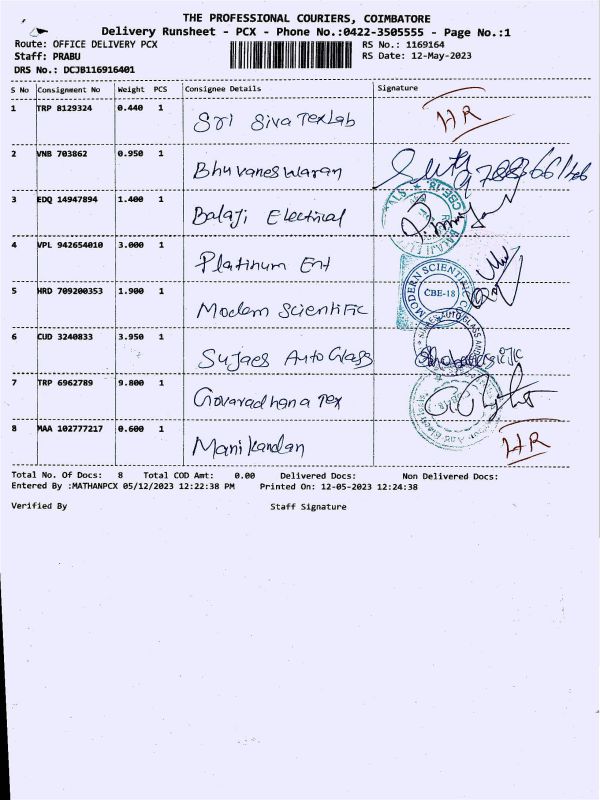 THE PROFESSIONAL COURIERS, COIMBATORE
Delivery Runsheet - PCX - Phone No.:0422-3505555 - Page No.:1
Route: OFFICE DELIVERY PCX RS No.: 1169164
Staff: PRABU RS Date: 12-May-2023
DRS No.: DCJB116916401
S No Consignment No Weight PCS Consignee Details Signature
1 TRP 8129324 0.440 1 Sri Siva Tex Lab HR
2 VNB 703862 0.950 1 Bhuvaneswaran
3 EDQ 14947894 1.400 1 Balaji Electrical
4 VPL 942654010 3.000 1 Platinum Ent
MODERN SCIENTIFIC
CBE-18
5 HRD 709200353 1.900 1 Modern Scientific
6 CUD 3240833 3.950 1 Sujaes Auto Glass
7 TRP 6962789 9.800 1 Govaradhana Tex
8 MAA 102777217 0.600 1 Manikandan HR
Total No. Of Docs: 8 Total COD Amt: 0.00 Delivered Docs: Non Delivered Docs:
Entered By :MATHANPCX 05/12/2023 12:22:38 PM Printed On: 12-05-2023 12:24:38
Verified By Staff Signature